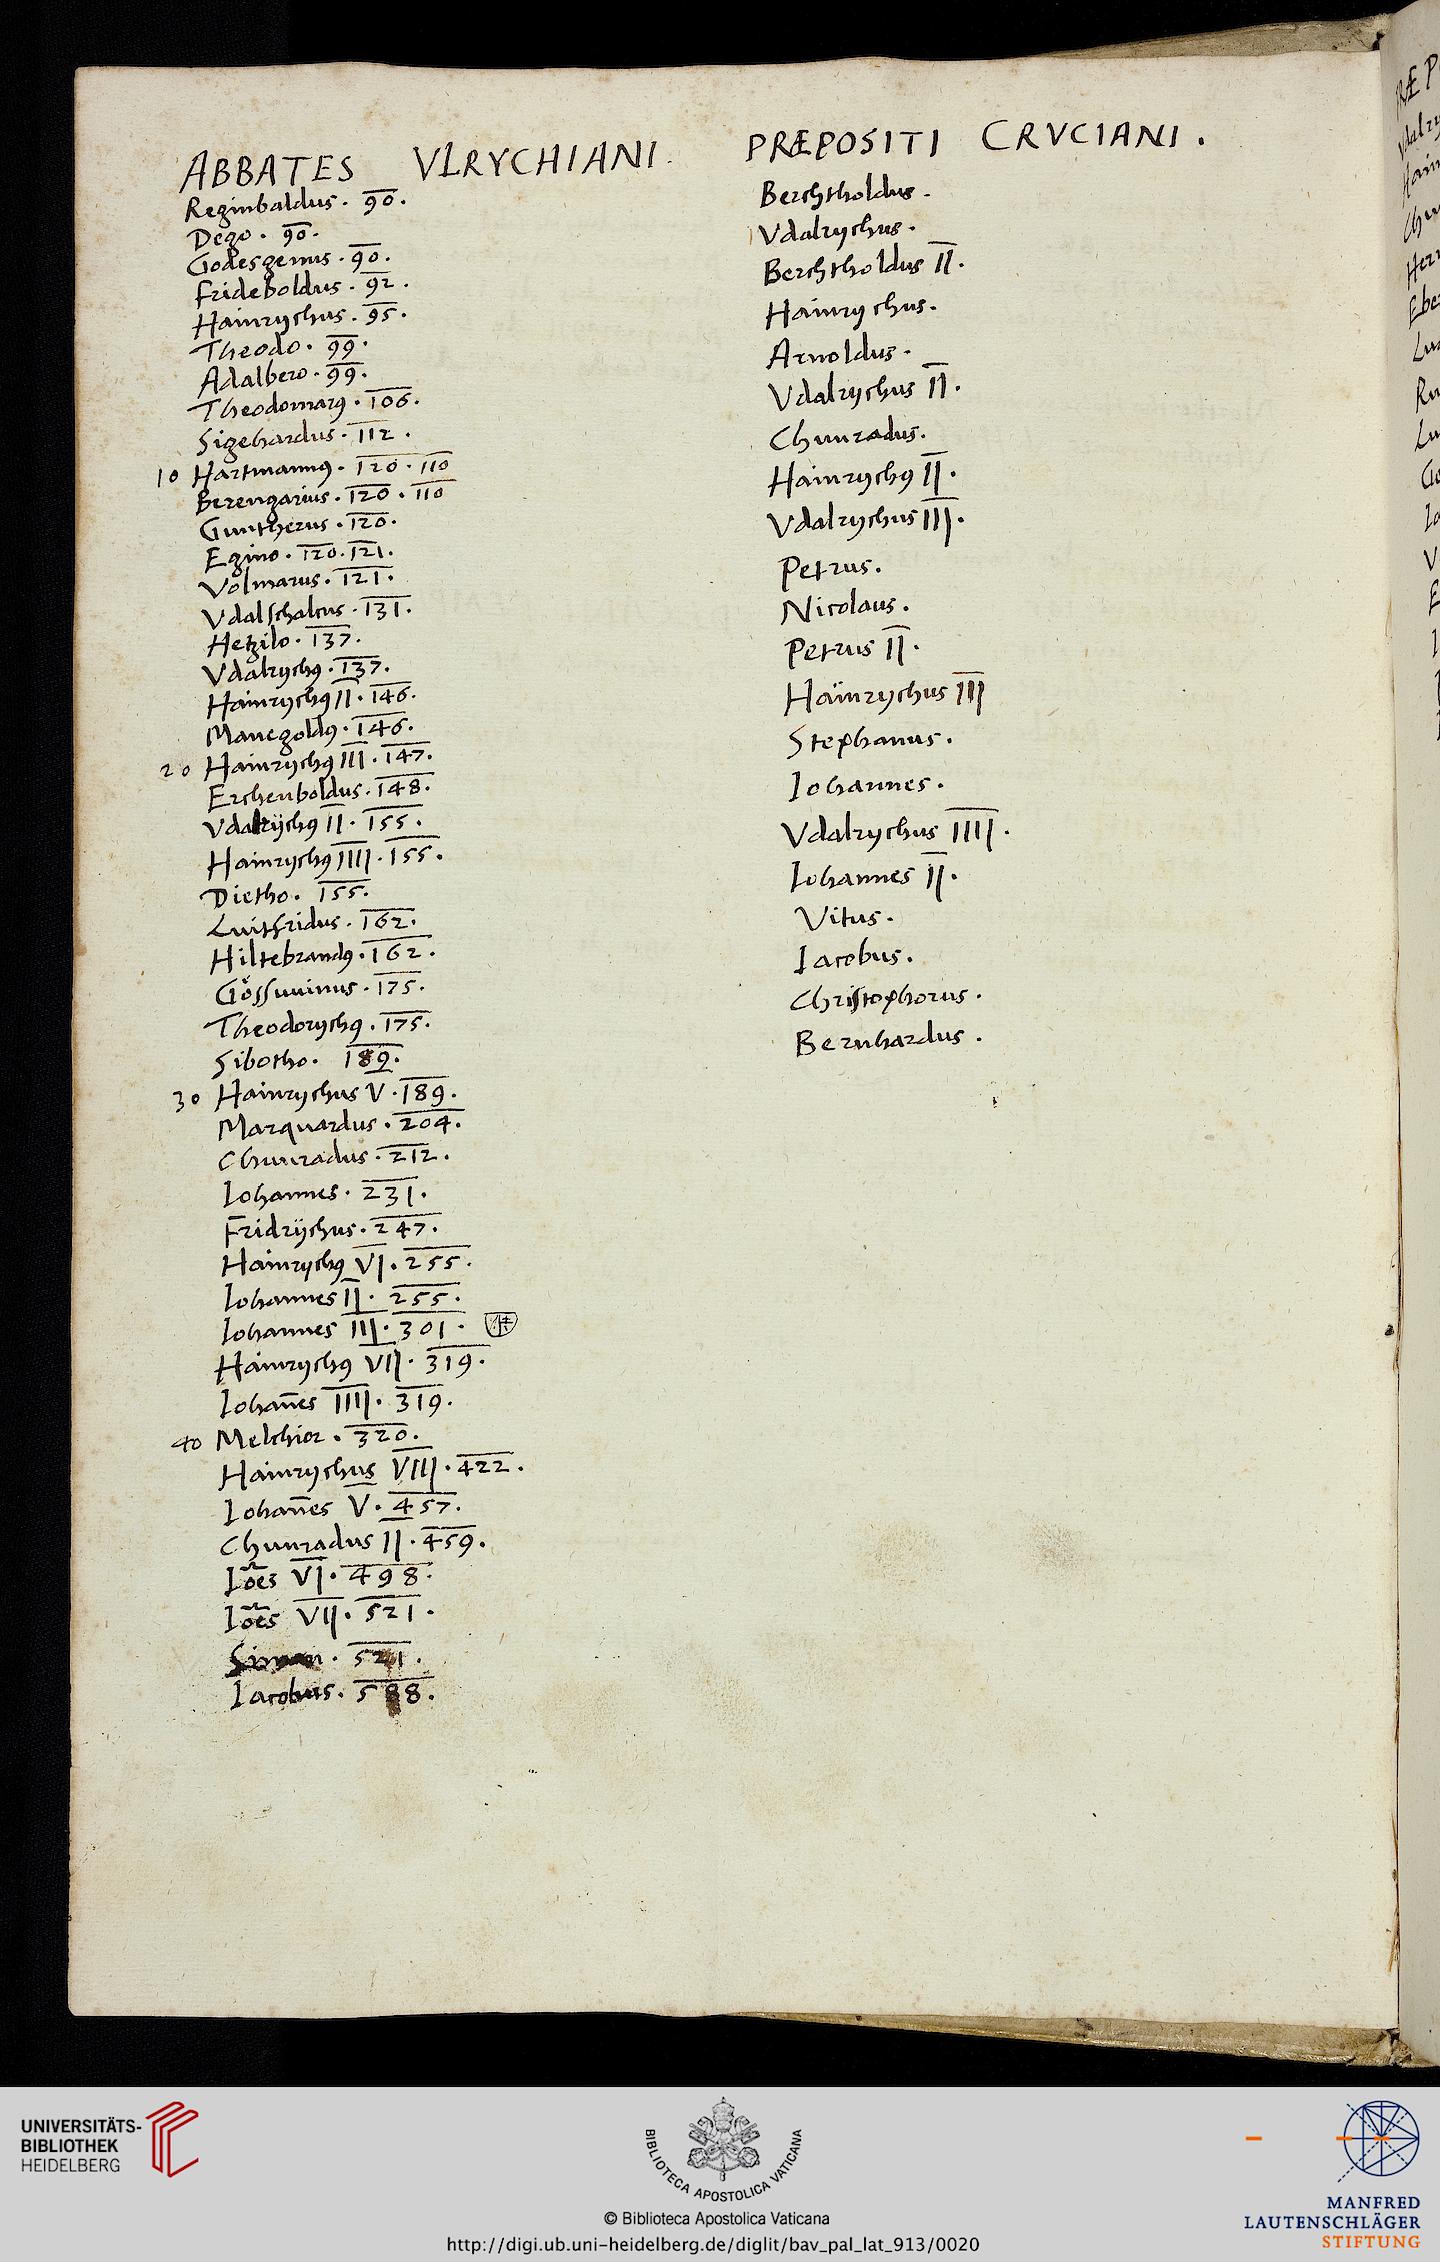 ABBATES VLRYCHIANI
Reginbaldus. 90.
Dego. 90.
Godesgenus. 90.
Frideboldus. 92.
Hainrychus. 95.
Theodo. 99.
Adalbero. 99.
Theodomarꝰ. 106.
Sigehardus. 112.
10 Hartmannꝰ. 120. 110
Berengarius. 120. 110
Guntherus. 120.
Egino. 120. 121.
Volmarus. 121.
Vdalschalcus. 131.
Hetzilo. 137.
Vdalrychꝰ. 137.
Hainrychꝰ II. 146.
Manegoldꝰ. 146.
20 Hainrychꝰ III. 147.
Erchenboldus. 148.
Vdalrÿchꝰ II. 155.
Hainrychꝰ IIII. 155.
Dietho. 155.
Luitfridus. 162.
Hiltebrandꝰ. 162.
Gössuuinus. 175.
Theodorychꝰ. 175.
Sibotho. 189.
30 Hainrychus V. 189.
Marquardus. 204.
Chunradus. 212.
Iohannes. 231.
Fridrÿchus. 247.
Hainrychꝰ VI. 255.
Iohannes II. 255.
Iohannes III. 301.
Hainrychꝰ VII. 319.
Iohan̄es IIII. 319.
40 Melchior. 320.
Hainrychus VIII. 422.
Iohan̄es V. 457.
Chunradus II. 459.
Ioēs VI. 498.
Ioēs VII. 521.
Simon. 521.
Iacobus. 588.
PRÆPOSITI CRVCIANI.
Berchtholdus.
Vdalrychus.
Berchtholdus II.
Hainrychus.
Arnoldus.
Vdalrychus II.
Chunradus.
Hainrychꝰ II.
Vdalrychus III.
Petrus.
Nicolaus.
Petrus II.
Hainrychus III
Stephanus.
Iohannes.
Vdalrychus IIII.
Iohannes II.
Vitus.
Iacobus.
Christophorus.
Bernhardus.
UNIVERSITÄTS-
BIBLIOTHEK
HEIDELBERG
BIBLIOTECA APOSTOLICA VATICANA
© Biblioteca Apostolica Vaticana
http://digi.ub.uni-heidelberg.de/diglit/bav_pal_lat_913/0020
MANFRED
LAUTENSCHLÄGER
STIFTUNG